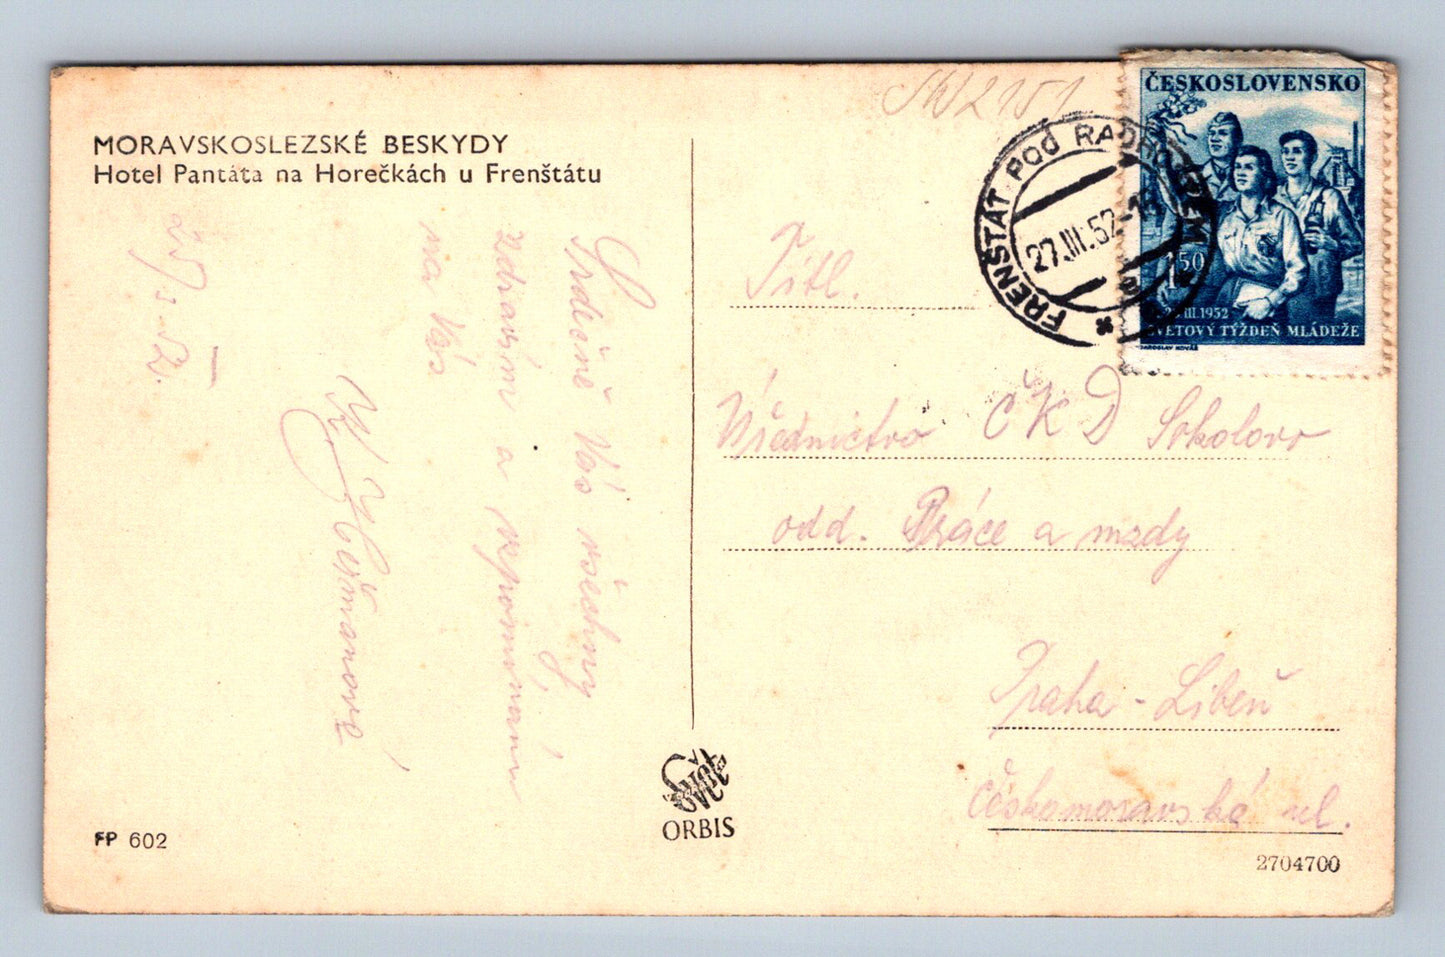 SW2151
MORAVSKOSLEZSKÉ BESKYDY
Hotel Pantáta na Horečkách u Frenštátu
25/3 52.
Srdečně Vás všechny
zdravím a vzpomínám
na Vás
Heřmanová
ČESKOSLOVENSKO
1.50
III 1952
SVĚTOVÝ TÝŽDEŇ MLÁDEŽE
JAROSLAV KOVÁŘ
FRENŠTÁT POD RADHOŠTĚM
27.III.52-
Titl.
Úřednictvo ČKD Sokolovo
odd. Práce a mzdy
Praha - Libeň
Českomoravská ul.
Svět
ORBIS
FP 602
2704700